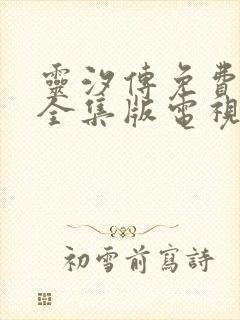 靈汐傳免費
全集版電視
初雪前寫詩